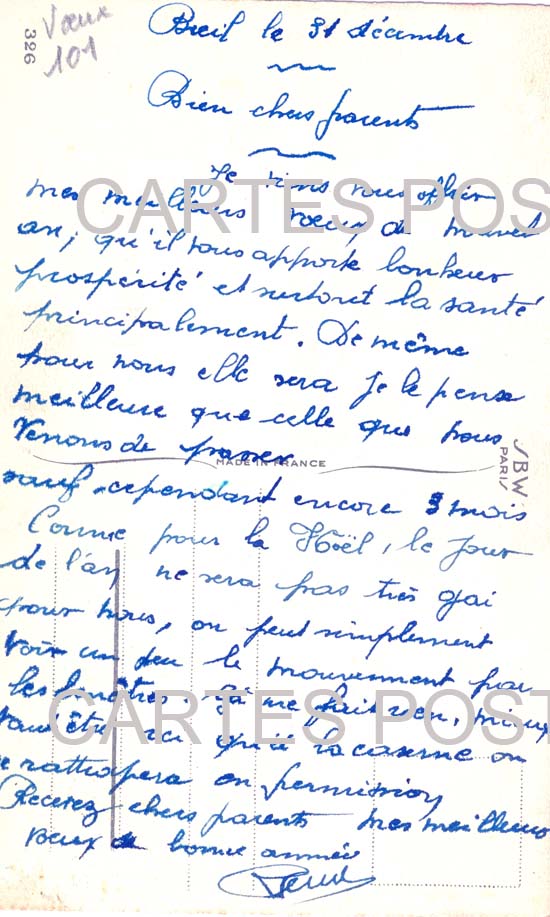 Vœux
101
326
Breil le 31 décembre
Bien chers parents
Je viens vous offrir
mes meilleurs vœux de nouvel
an, qu'il vous apporte bonheur
prospérité et surtout la santé
principalement. De même
pour nous elle sera je le pense
meilleure que celle que nous
Venons de passer
MADE IN FRANCE
JBW
PARIS
sauf cependant encore 3 mois
Comme pour la Noël, le jour
de l'an ne sera pas très gai
pour nous, on peut simplement
voir un peu le mouvement par
les fenêtres. Ça ne fait rien, mieux
vaut être ici qu'à la caserne on
se rattrapera en permission
Recevez chers parents mes meilleurs
vœux de bonne année
CARTES POST
CARTES POST